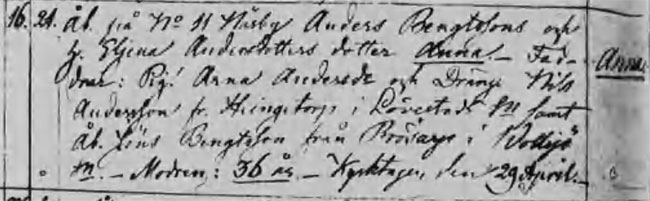 16. 21. åb. på No 11 Näsby Anders Bengtssons och
h. Eljena Andersdotters dotter Anna. — Fad- Anna
drar: Pig. Anna Andersdr och Dräng Nils
Andersson fr. i Löfvestads sn samt
åb. Jöns Bengtsson från i
sn. — Modren: 36 år — Kyrktagen den 29 April. —